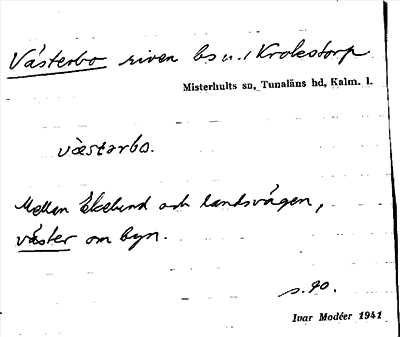 Västerbo riven bs u. Krokstorp
Misterhults sn, Tunaläns hd, Kalm. l.
västərbo.
Mellan Ekelund och landsvägen,
väster om byn.
s. 90.
Ivar Modéer 1941